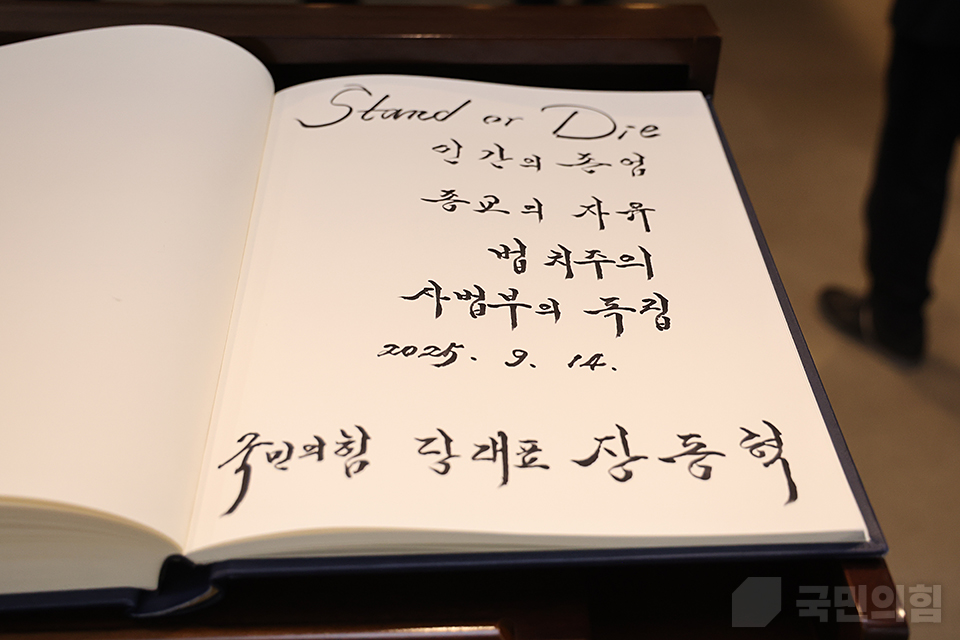 Stand or Die
인간의 존엄
종교의 자유
법치주의
사법부의 독립
2025. 9. 14.
국민의힘 당대표 장동혁
국민의힘